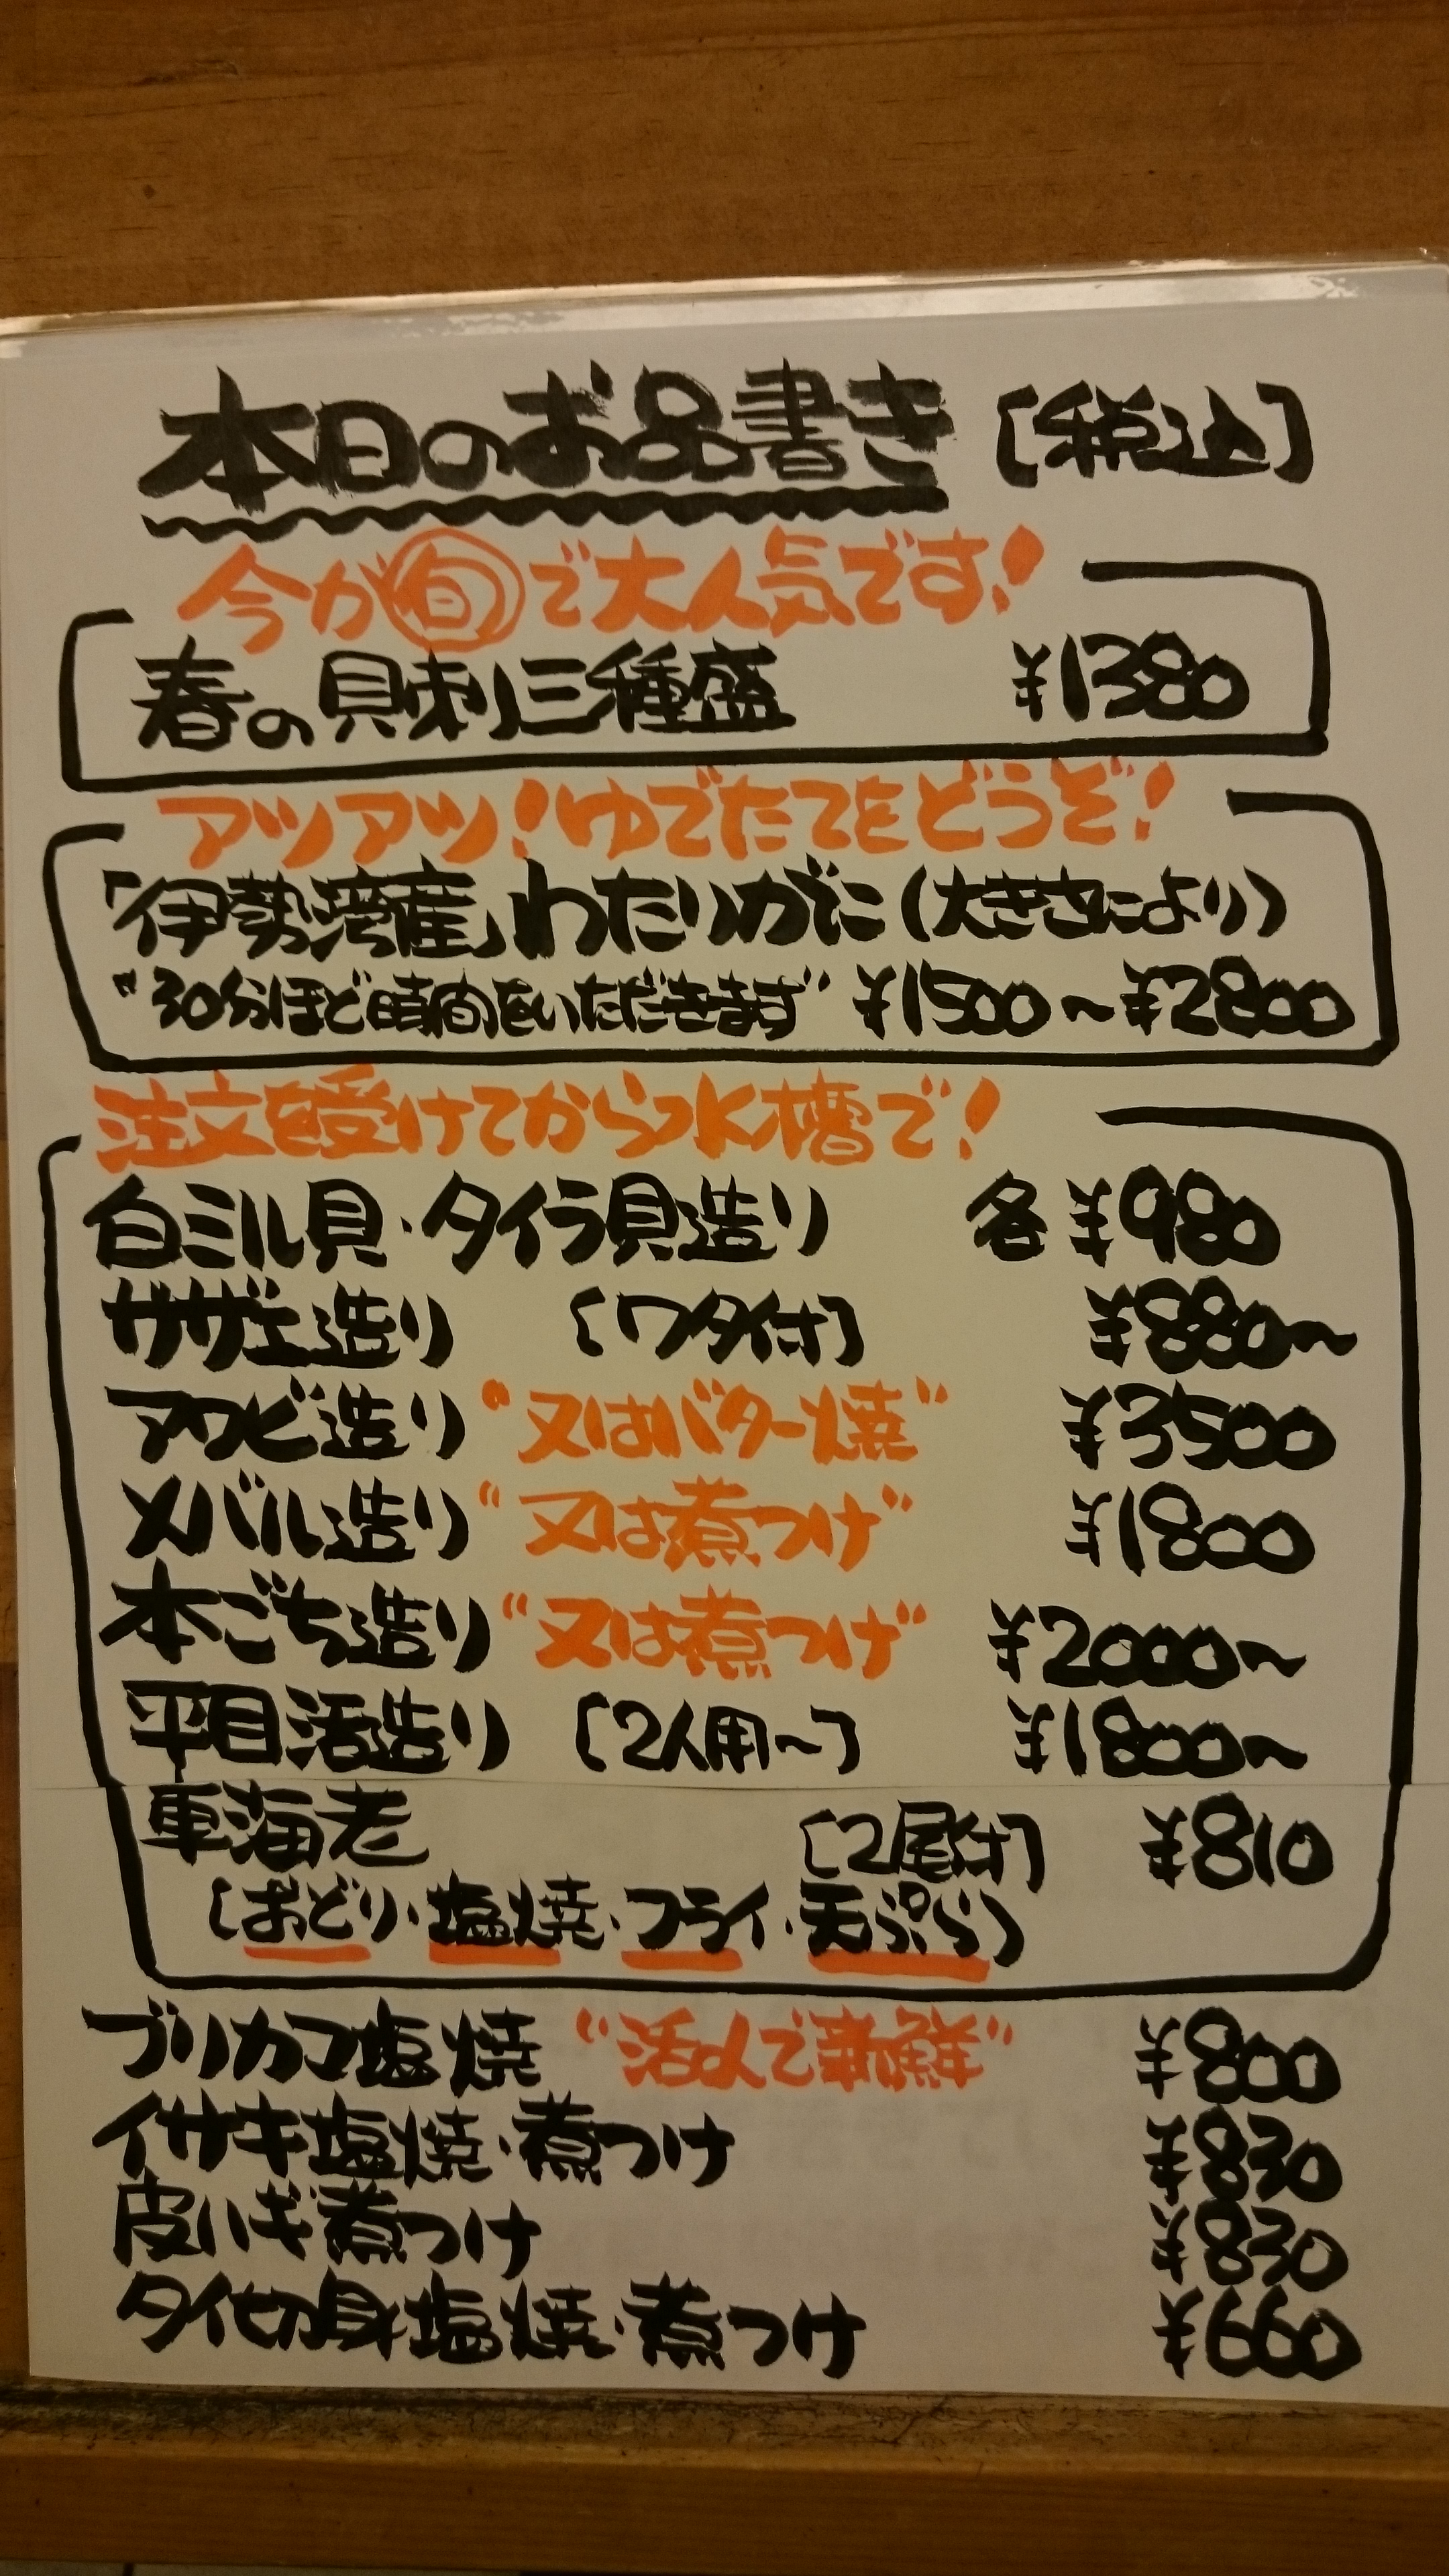 本日のお品書き [税込]
今が旬で大人気です!
春の貝刺三種盛 ¥1380
アツアツ!ゆでたてをどうぞ!
「伊勢湾産」わたりがに(大きさにより)
"30分ほど時間をいただきます" ¥1500~¥2800
注文を受けてから水槽で!
白ミル貝・タイラ貝造り 各¥980
サザエ造り [ワタ付] ¥880~
アワビ造り "又はバター焼" ¥3500
メバル造り "又は煮つけ" ¥1800
本ごち造り "又は煮つけ" ¥2000~
平目活造り [2人用~] ¥1800~
車海老 [2尾付] ¥810
[おどり・塩焼・フライ・天ぷら]
ブリカマ塩焼 "活〆で新鮮" ¥800
イサキ塩焼・煮つけ ¥830
皮ハギ煮つけ ¥830
タイ切身塩焼・煮つけ ¥690